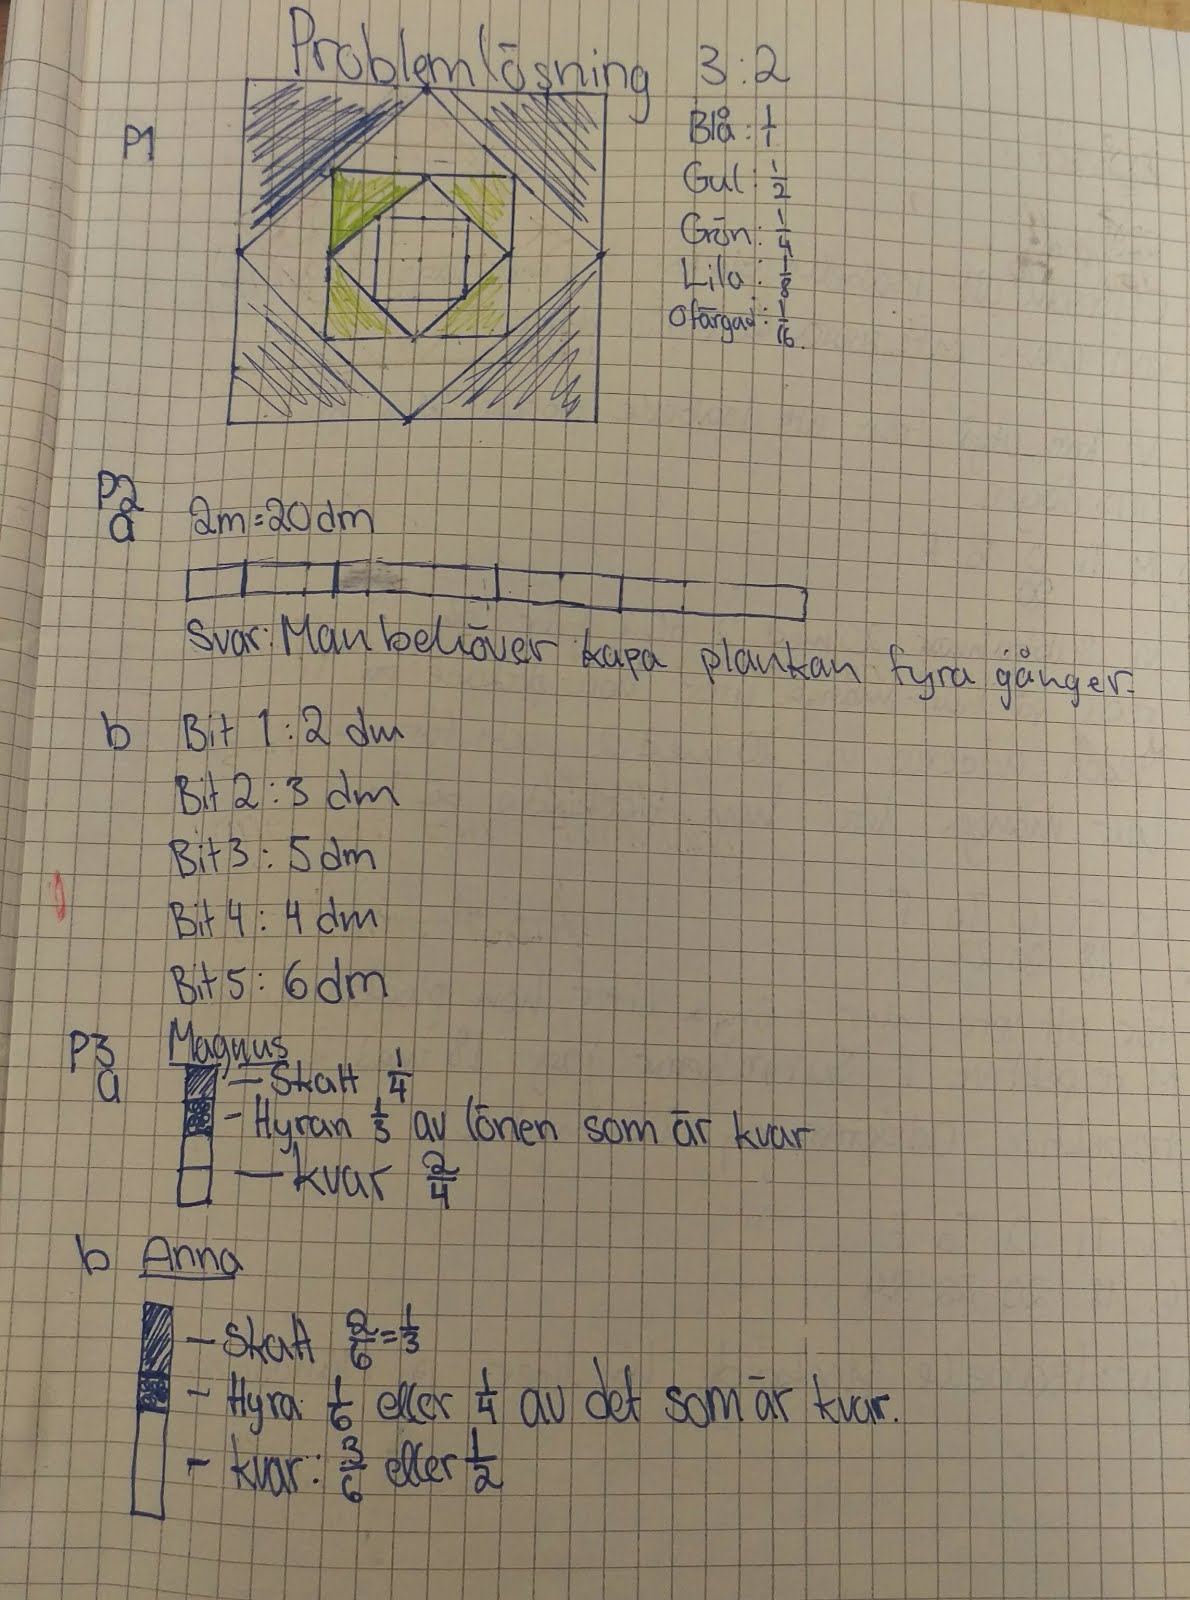 Problemlösning 3:2
P1
Blå: 1/1
Gul: 1/2
Grön: 1/4
Lila: 1/8
Ofärgad: 1/16.
P2
a 2m=20dm
Svar: Man behöver kapa plankan fyra gånger.
b Bit 1: 2 dm
Bit 2: 3 dm
Bit 3: 5 dm
Bit 4: 4 dm
Bit 5: 6 dm
P3 Magnus
a – Skatt 1/4
- Hyran 1/3 av lönen som är kvar
– kvar 2/4
b Anna
– Skatt 2/6=1/3
- Hyra: 1/6 eller 1/4 av det som är kvar.
- kvar: 3/6 eller 1/2